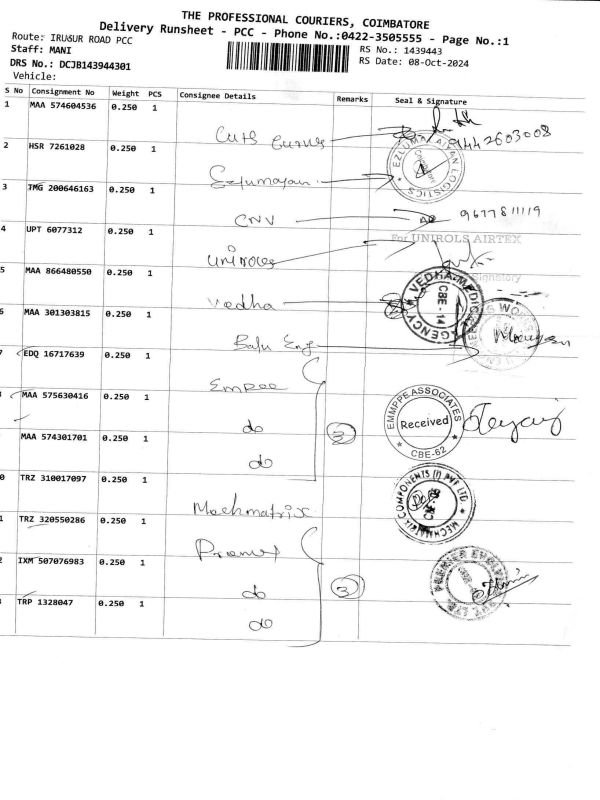 THE PROFESSIONAL COURIERS, COIMBATORE
Delivery Runsheet - PCC - Phone No.:0422-3505555 - Page No.:1
Route: IRUGUR ROAD PCC
RS No.: 1439443
Staff: MANI
RS Date: 08-Oct-2024
DRS No.: DCJB143944301
Vehicle:
S No Consignment No Weight PCS Consignee Details Remarks Seal & Signature
1 MAA 574604536 0.250 1
9442603008
2 HSR 7261028 0.250 1 Ezlumayan
EZLUMALAIYAN LOGISTICS
3 TMG 200646163 0.250 1 CNV 9677811119
4 UPT 6077312 0.250 1 Unirols
For UNIROLS AIRTEX
Signatory
5 MAA 866480550 0.250 1 Vedha
VEDHA MEDIC AGENCY CBE-14
6 MAA 301303815 0.250 1 Balu Eng
7 EDQ 16717639 0.250 1 Empee
MAA 575630416 0.250 1 do 3
EMMPPE ASSOCIATES
Received
CBE-62
MAA 574301701 0.250 1 do
0 TRZ 310017097 0.250 1 Mechmatrix
MECHMATRIX COMPONENTS (I) PVT LTD
1 TRZ 320550286 0.250 1 Premier
2 IXM 507076983 0.250 1 do 3
PREMIER
TRP 1328047 0.250 1 do